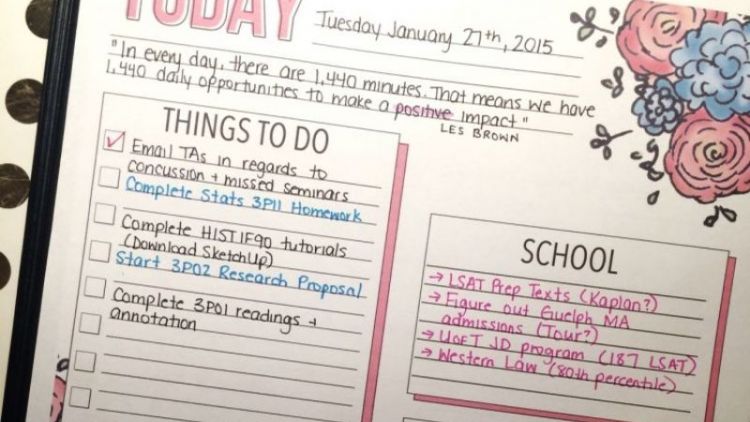 TODAY
Tuesday January 27th, 2015
"In every day, there are 1,440 minutes. That means we have
1,440 daily opportunities to make a positive impact"
LES BROWN
THINGS TO DO
Email TAs in regards to
concussion + missed seminars
Complete Stats 3P11 Homework
Complete HIST1F90 tutorials
(Download SketchUp)
Start 3P02 Research Proposal
Complete 3P01 readings +
annotation
SCHOOL
→ LSAT Prep Texts (Kaplan?)
→ Figure out Guelph MA
admissions (Tour?)
→ UofT JD program (187 LSAT)
→ Western Law (80th percentile)